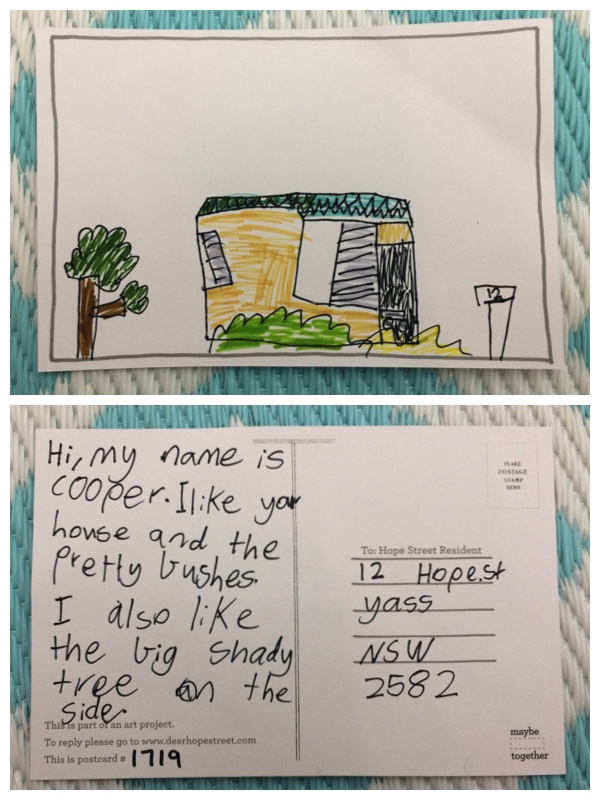 12
Hi, my name is
cooper. I like your
house and the
pretty bushes.
I also like
the big shady
tree on the
side.
This is part of an art project.
To reply please go to www.dearhopestreet.com
This is postcard # 1719
PLACE
POSTAGE
STAMP
HERE
To: Hope Street Resident
12 Hope.st
yass
NSW
2582
maybe
together